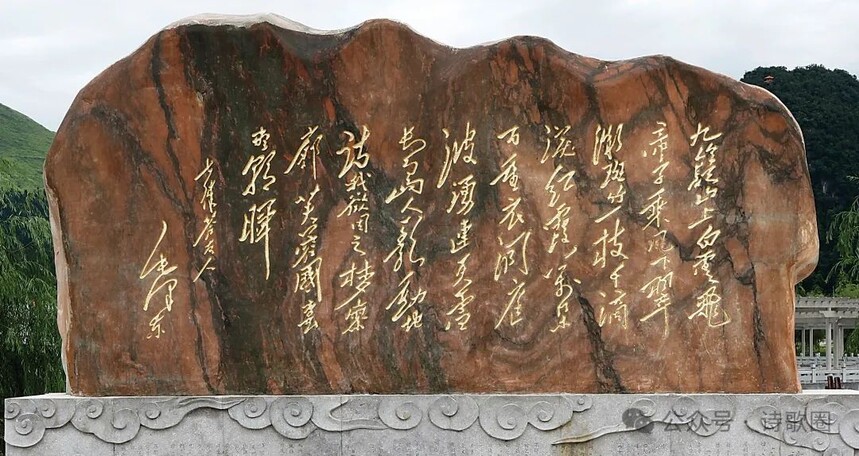 九嶷山上白雲飛
帝子乘风下翠
微斑竹一枝千滴
淚红霞萬朵
百重衣洞庭
波涌連天雪
長島人歌動地
诗我欲因之梦寥
廓芙蓉國里
尽朝暉
七律答友人
毛泽东
公众号·诗歌圈